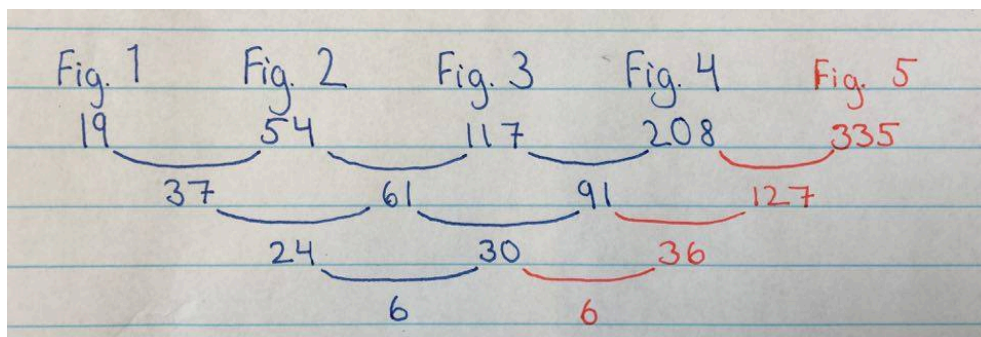 Fig. 1 Fig. 2 Fig. 3 Fig. 4 Fig. 5
19 54 117 208 335
37 61 91 127
24 30 36
6 6